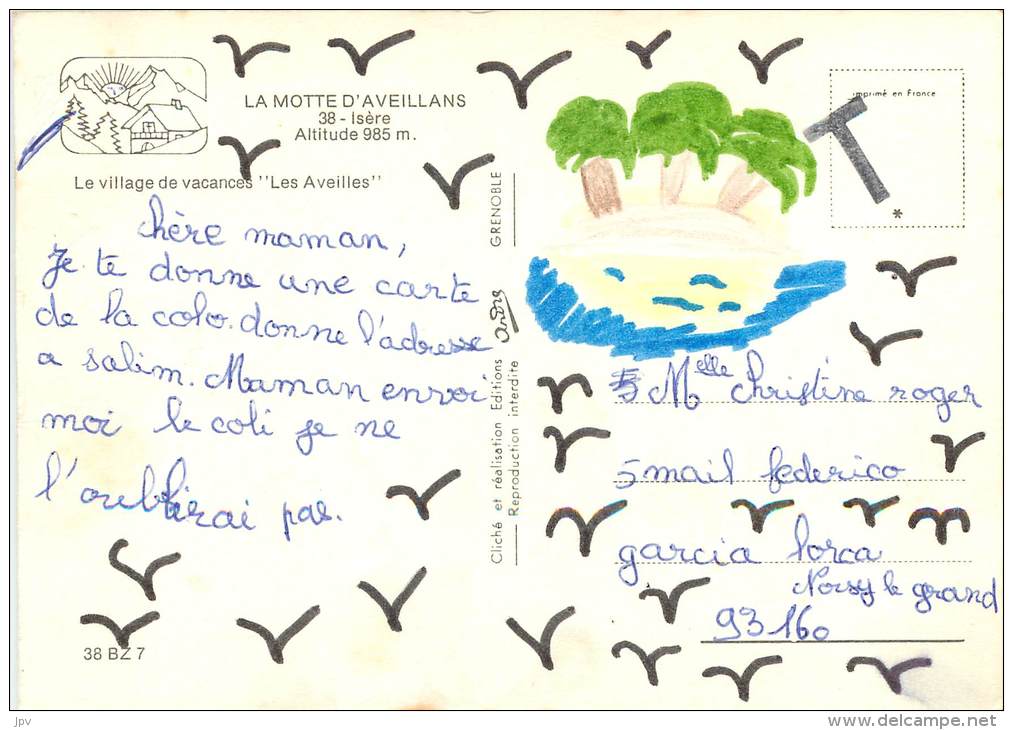 LA MOTTE D'AVEILLANS
38 - Isère
Altitude 985 m.
Le village de vacances "Les Aveilles"
chère maman,
Je te donne une carte
de la colo. donne l'adresse
a salim. Maman envoi
moi le coli je ne
l'oublirai pas.
38 BZ 7
GRENOBLE
André
Cliché et réalisation Editions
Reproduction interdite
imprimé en France
T
*
Melle Christine roger
5 mail federico
garcia lorca
Noisy le grand
93160
jpv
www.delcampe.net